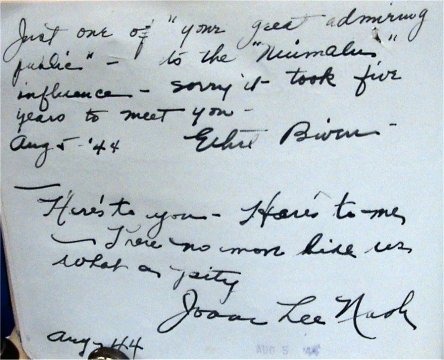 Just one of "your great admiring
public" - to the
influence - sorry it took five
years to meet you -
Aug 5 - '44 Ethel
Here's to you - Here's to me,
no more like us
what a pity
Lee Nash
Aug 44
AUG 5 '44